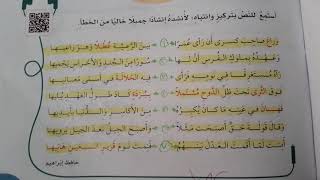 أستمعُ للنصِّ بتركيزٍ وانتباهٍ، لأنشدَهُ إنشادًا جميلًا خاليًا من الخطأ.
وَرَاعَ صَاحِبَ كِسْرَى أَنْ رَأَى عُمَرًا ١ بَيْنَ الرَّعِيَّةِ عُطْلًا وَهْوَ رَاعِيهَا
وَعَهْدُهُ بِمُلُوكِ الْفُرْسِ أَنَّ لَهَا ٢ سُورًا مِنَ الْجُنْدِ وَالْأَحْرَاسِ يَحْمِيهَا
رَآهُ مُسْتَغْرِقًا فِي نَوْمِهِ فَرَأَى ٣ فِيهِ الْجَلَالَةَ فِي أَسْمَى مَعَانِيهَا
فَوْقَ الثَّرَى تَحْتَ ظِلِّ الدَّوْحِ مُشْتَمِلًا ٤ بِبُرْدَةٍ كَادَ طُولُ الْعَهْدِ يُبْلِيهَا
فَهَانَ فِي عَيْنِهِ مَا كَانَ يُكْبِرُهُ ٥ مِنَ الْأَكَاسِرِ وَالدُّنْيَا بِأَيْدِيهَا
وَقَالَ قَوْلَةَ حَقٍّ أَصْبَحَتْ مَثَلًا ٦ وَأَصْبَحَ الْجِيلُ بَعْدَ الْجِيلِ يَرْوِيهَا
أَمِنْتَ لَمَّا أَقَمْتَ الْعَدْلَ بَيْنَهُمُ ٧ فَنِمْتَ نَوْمَ قَرِيرِ الْعَيْنِ هَانِيهَا
حافظ إبراهيم